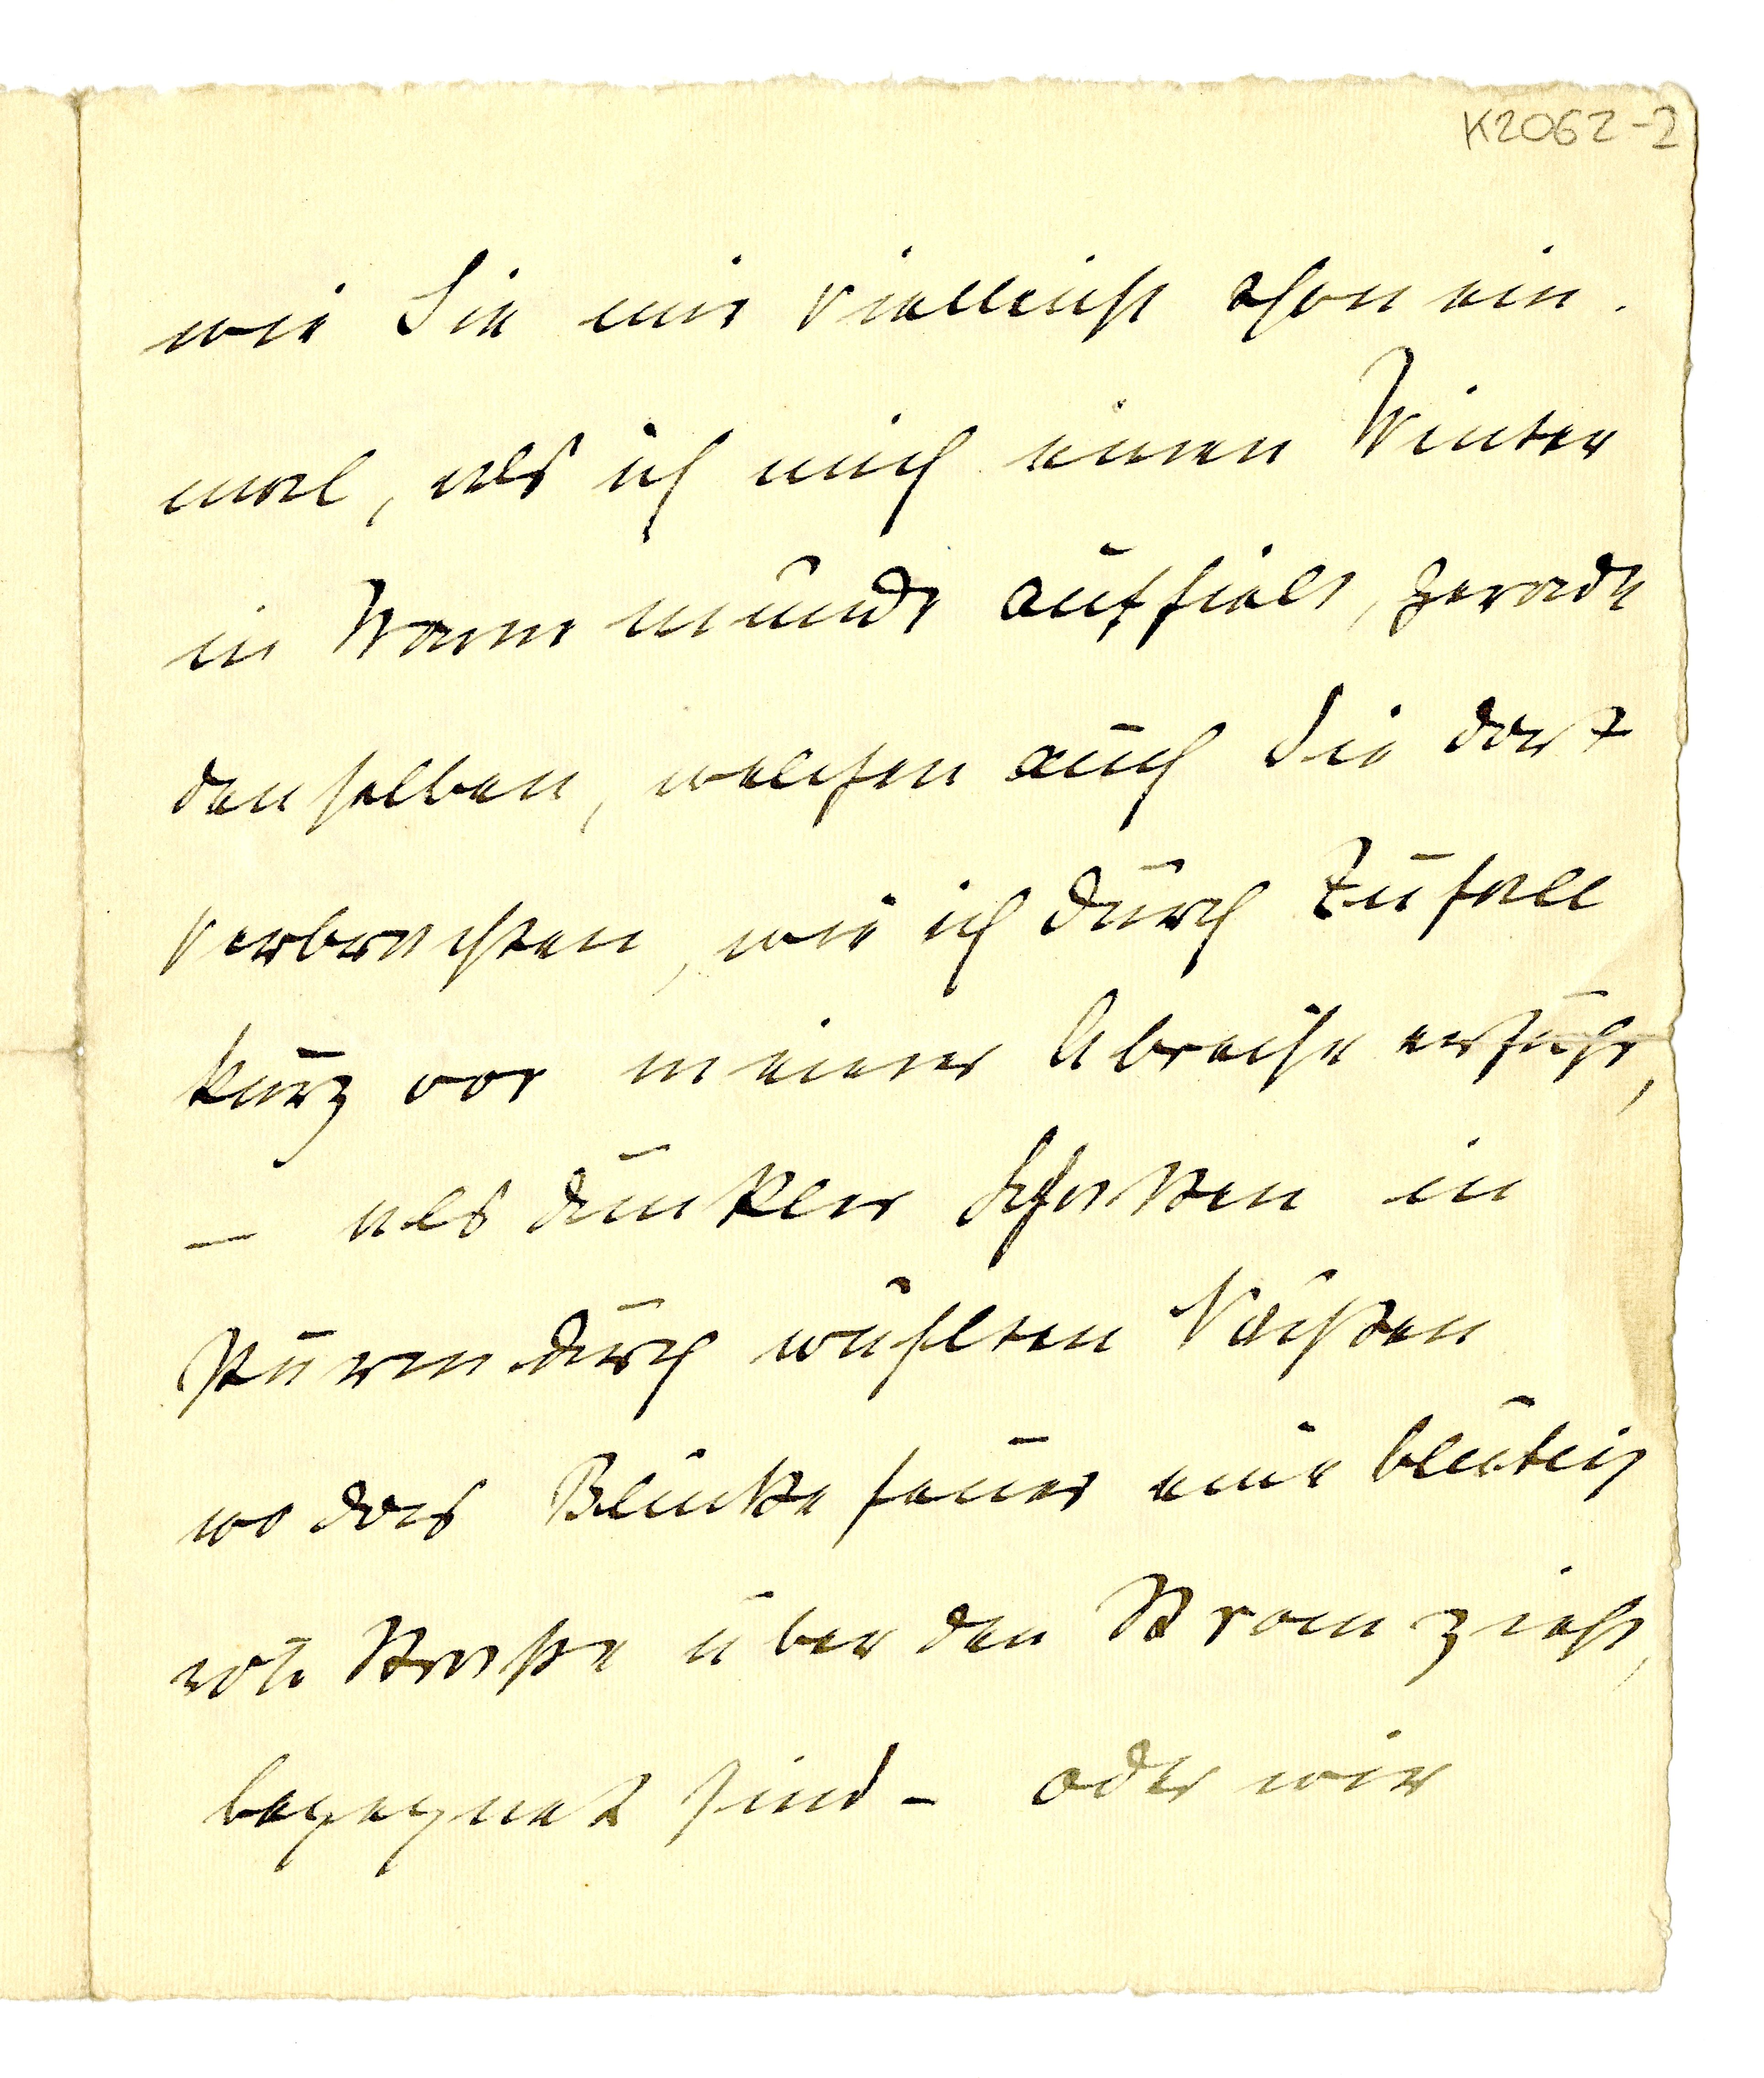 K2062-2
wie Sie mir vielleicht schon ein-
mal, als ich mich einen Winter
in Warnemünde aufhielt, gerade
denselben, welchen auch Sie dort
verbrachten, wie ich durch Zufall
kurz vor meiner Abreise erfuhr,
– als dunkler Schatten in
sturmdurchwühlten Nächten
wo das Blinkfeuer eine blutig
rote Strasse über den Strom zieht,
begegnet sind – oder wie